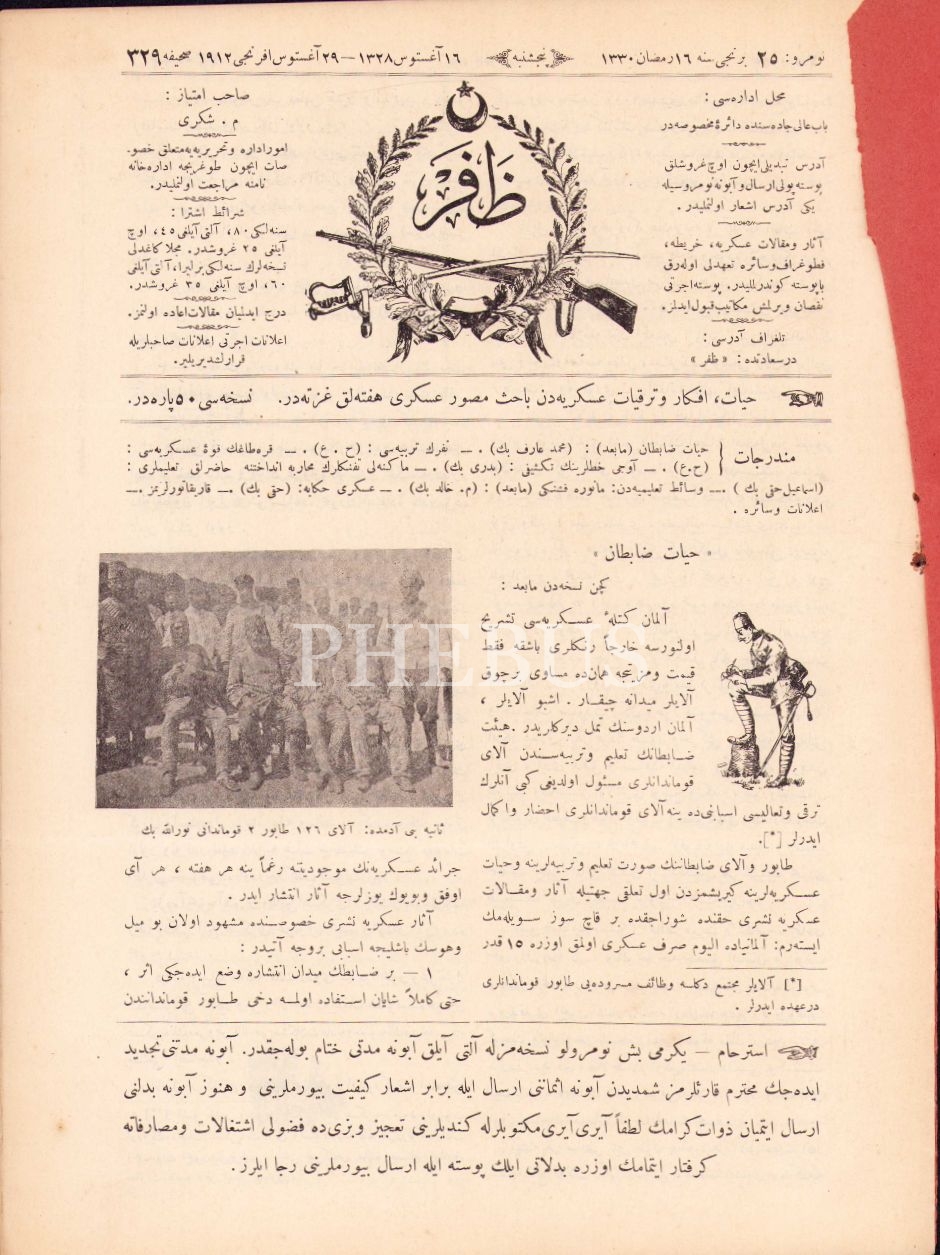 نومرو: ٢٥ برنجی سنه ١٦ رمضان ١٣٣٠
پنجشنبه
١٦ آغستوس ١٣٢٨ — ٢٩ آغستوس افرنجی ١٩١٢ صحیفه ٣٢٩
محل اداره‌سی :
باب عالی جاده‌سنده دائرهٔ مخصوصه‌در
آدرس تبدیلی ایچون اوچ غروشلق
پوسته پولی ارسال و آبونه نومروسیله
یکی آدرس اشعار اولنملیدر .
آثار ومقالات عسکریه، خریطه،
فطوغراف وسائره تعهدلی اوله‌رق
پوسته کوندرلملیدر. پوسته اجرتی
نقصان ویرلمش مکاتیب قبول ایدلمز.
تلغراف آدرسی :
درسعادتده : « ظفر »
ظفر
صاحب امتیاز :
م . شکری
امور اداره و تحریریه‌یه متعلق خصو-
صات ایچون طوغریجه اداره‌خانه
نامنه مراجعت اولنملیدر.
شرائط اشترا :
سنه‌لکی ٨٠، آلتی آیلغی ٤٥، اوچ
آیلغی ٢٥ غروشدر. مجلا کاغدلی
نسخه‌لرك سنه‌لکی بر لیرا، آلتی آیلغی
٦٠، اوچ آیلغی ٣٥ غروشدر.
درج ایدلمیان مقالات اعاده اولنمز.
اعلانات اجرتی اعلانات صاحبلریله
قرارلشدیریلیر.
حیات، افکار و ترقیات عسکریه‌دن باحث مصور عسکری هفته‌لق غزته‌در. نسخه‌سی ٥٠ پاره‌در.
مندرجات
حیات ضابطان (مابعد) : (محمد عارف بك) . — نفرك تربیه‌سی : (ح . ع) . — قره‌طاغك قوهٔ عسکریه‌سی :
(ح.ع) . — آوجی خطلرینك تکثیفی : (بدری بك) . — ماکنه‌لی تفنکلرك محاربه انداختنه حاضرلق تعلیملری :
(اسماعیل حقی بك) . — وسائط تعلیمیه‌دن: مانوره فشنکی (مابعد) : (م. خالد بك) . — عسکری حکایه: (حقی بك) . — قاریقاتورلریمز . —
اعلانات وسائره .
« حیات ضابطان »
کچن نسخه‌دن مابعد :
آلمان کتلهٔ عسکریه‌سی تشریح
اولنورسه خارجاً رنکلری باشقه فقط
قیمت ومزیتجه همان‌ده مساوی برچوق
آلایلر میدانه چیقار . اشبو آلایلر ،
آلمان اردوسنك تمل دیرکلریدر . هیئت
ضابطانك تعلیم وتربیه‌سندن آلای
قوماندانلری مسئول اولدیغی کبی آنلرك
ترقی وتعالیسی اسبابنی‌ده ینه آلای قوماندانلری احضار واکمال
ایدرلر [*].
طابور وآلای ضابطاننك صورت تعلیم وتربیه‌لرینه وحیات
عسکریه‌لرینه کیریشمزدن اول تعلقی جهتیله آثار ومقالات
عسکریه نشری حقنده شوراجقده بر قاچ سوز سویله‌مك
ایسته‌رم: آلمانیاده الیوم صرف عسکری اولمق اوزره ١٥ قدر
[*] آلایلر مجتمع دکلسه وظائف مسروده‌یی طابور قوماندانلری
درعهده ایدرلر .
PHEBUS
آلای ١٢٦ طابور ٢ قوماندانی نورالله بك
جرائد عسکریه‌نك موجودیتنه رغماً ینه هر هفته ، هر آی
اوفق وبویوك یوزلرجه آثار انتشار ایدر .
آثار عسکریه نشری خصوصنده مشهود اولان بو میل
وهوسك باشلیجه اسبابی بروجه آتیدر :
١ — بر ضابطك میدان انتشاره وضع ایده‌جکی اثر ،
حتی کاملاً شایان استفاده اولمسه دخی طابور قوماندانندن
استرحام — یکرمی بش نومرولو نسخه‌مزله آلتی آیلق آبونه مدتی ختام بوله‌جقدر. آبونه مدتنی تجدید
ایده‌جك محترم قارئلرمز شمدیدن آبونه اثماننی ارسال ایله برابر اشعار کیفیت بیورملرینی و هنوز آبونه بدلنی
ارسال ایتمیان ذوات کرامك لطفاً آیری آیری مکتوبلرله کندیلرینی تعجیز وبزی‌ده فضولی اشتغالات ومصارفاته
کرفتار ایتمامك اوزره بدلاتی ایلك پوسته ایله ارسال بیورملرینی رجا ایلرز.